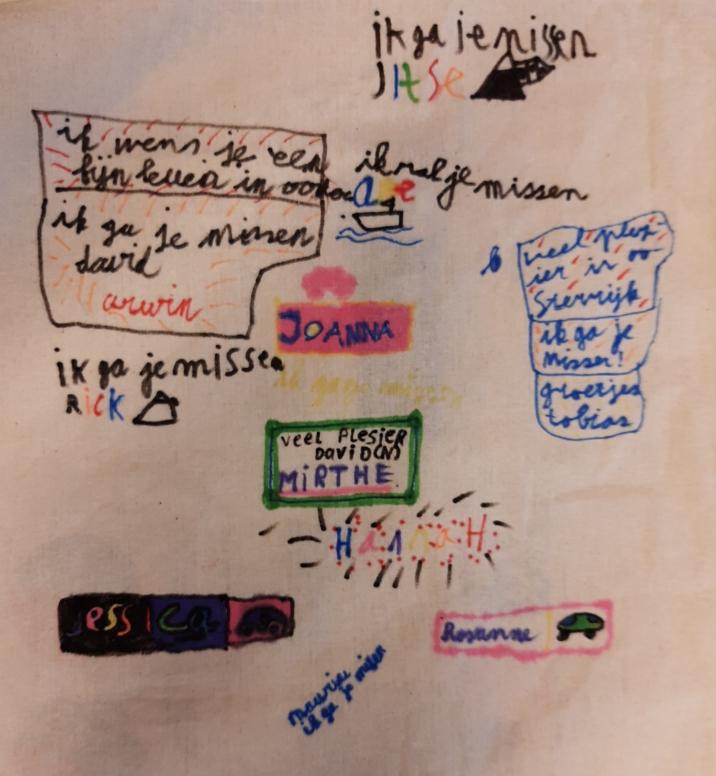 ik ga je missen
JItSe
ik wens je een
fijn leven in oo
ik ga je missen
david
arwin
ik zal je missen
veel plez
ier in oo
Stenrijk
ik ga je
missen!
groetjes
tobias
JOANNA
ik ga je missen
ik ga je missen
RICK
veel Plesier
DaviD(N)
MiRTHE
HannaH
Jessica
Rosanne
ik ga je missen